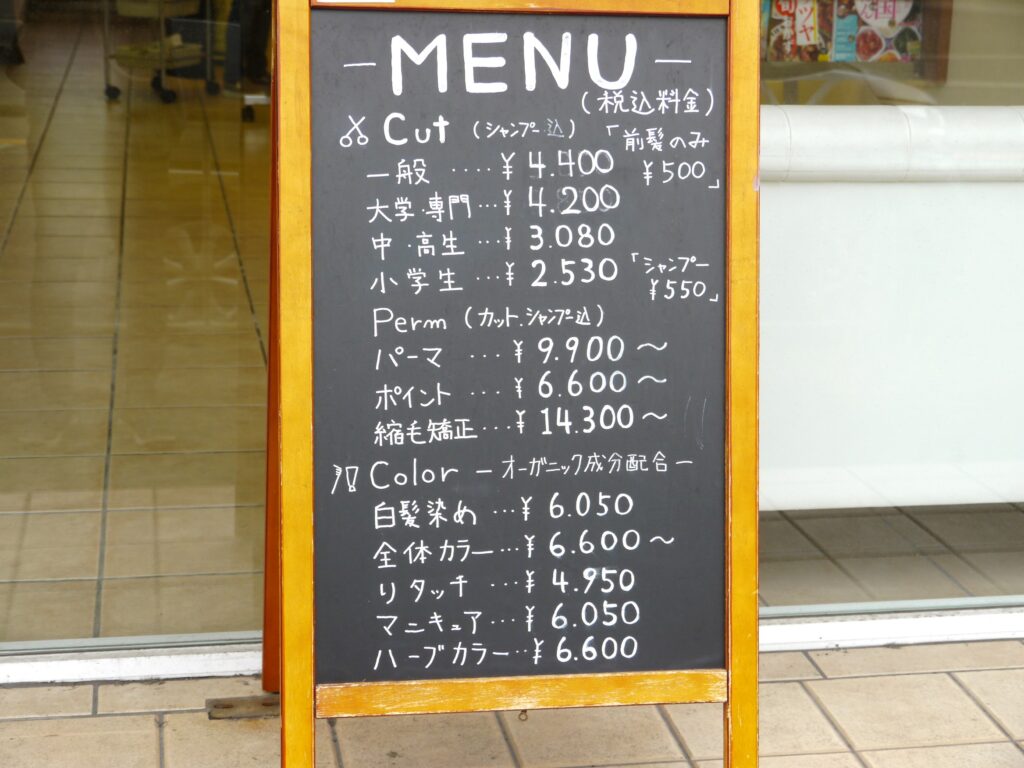 – MENU –
(税込料金)
Cut (シャンプー込)
「前髪のみ
¥500」
一般 ････ ¥ 4.400
大学・専門 … ¥ 4.200
中・高生 … ¥ 3.080
小学生 … ¥ 2.530
「シャンプー
¥550」
Perm (カット.シャンプー込)
パーマ … ¥ 9.900 〜
ポイント … ¥ 6.600 〜
縮毛矯正 … ¥ 14.300 〜
Color – オーガニック成分配合 –
白髪染め … ¥ 6.050
全体カラー … ¥ 6.600 〜
リタッチ … ¥ 4.950
マニキュア … ¥ 6.050
ハーブカラー ‥ ¥ 6.600